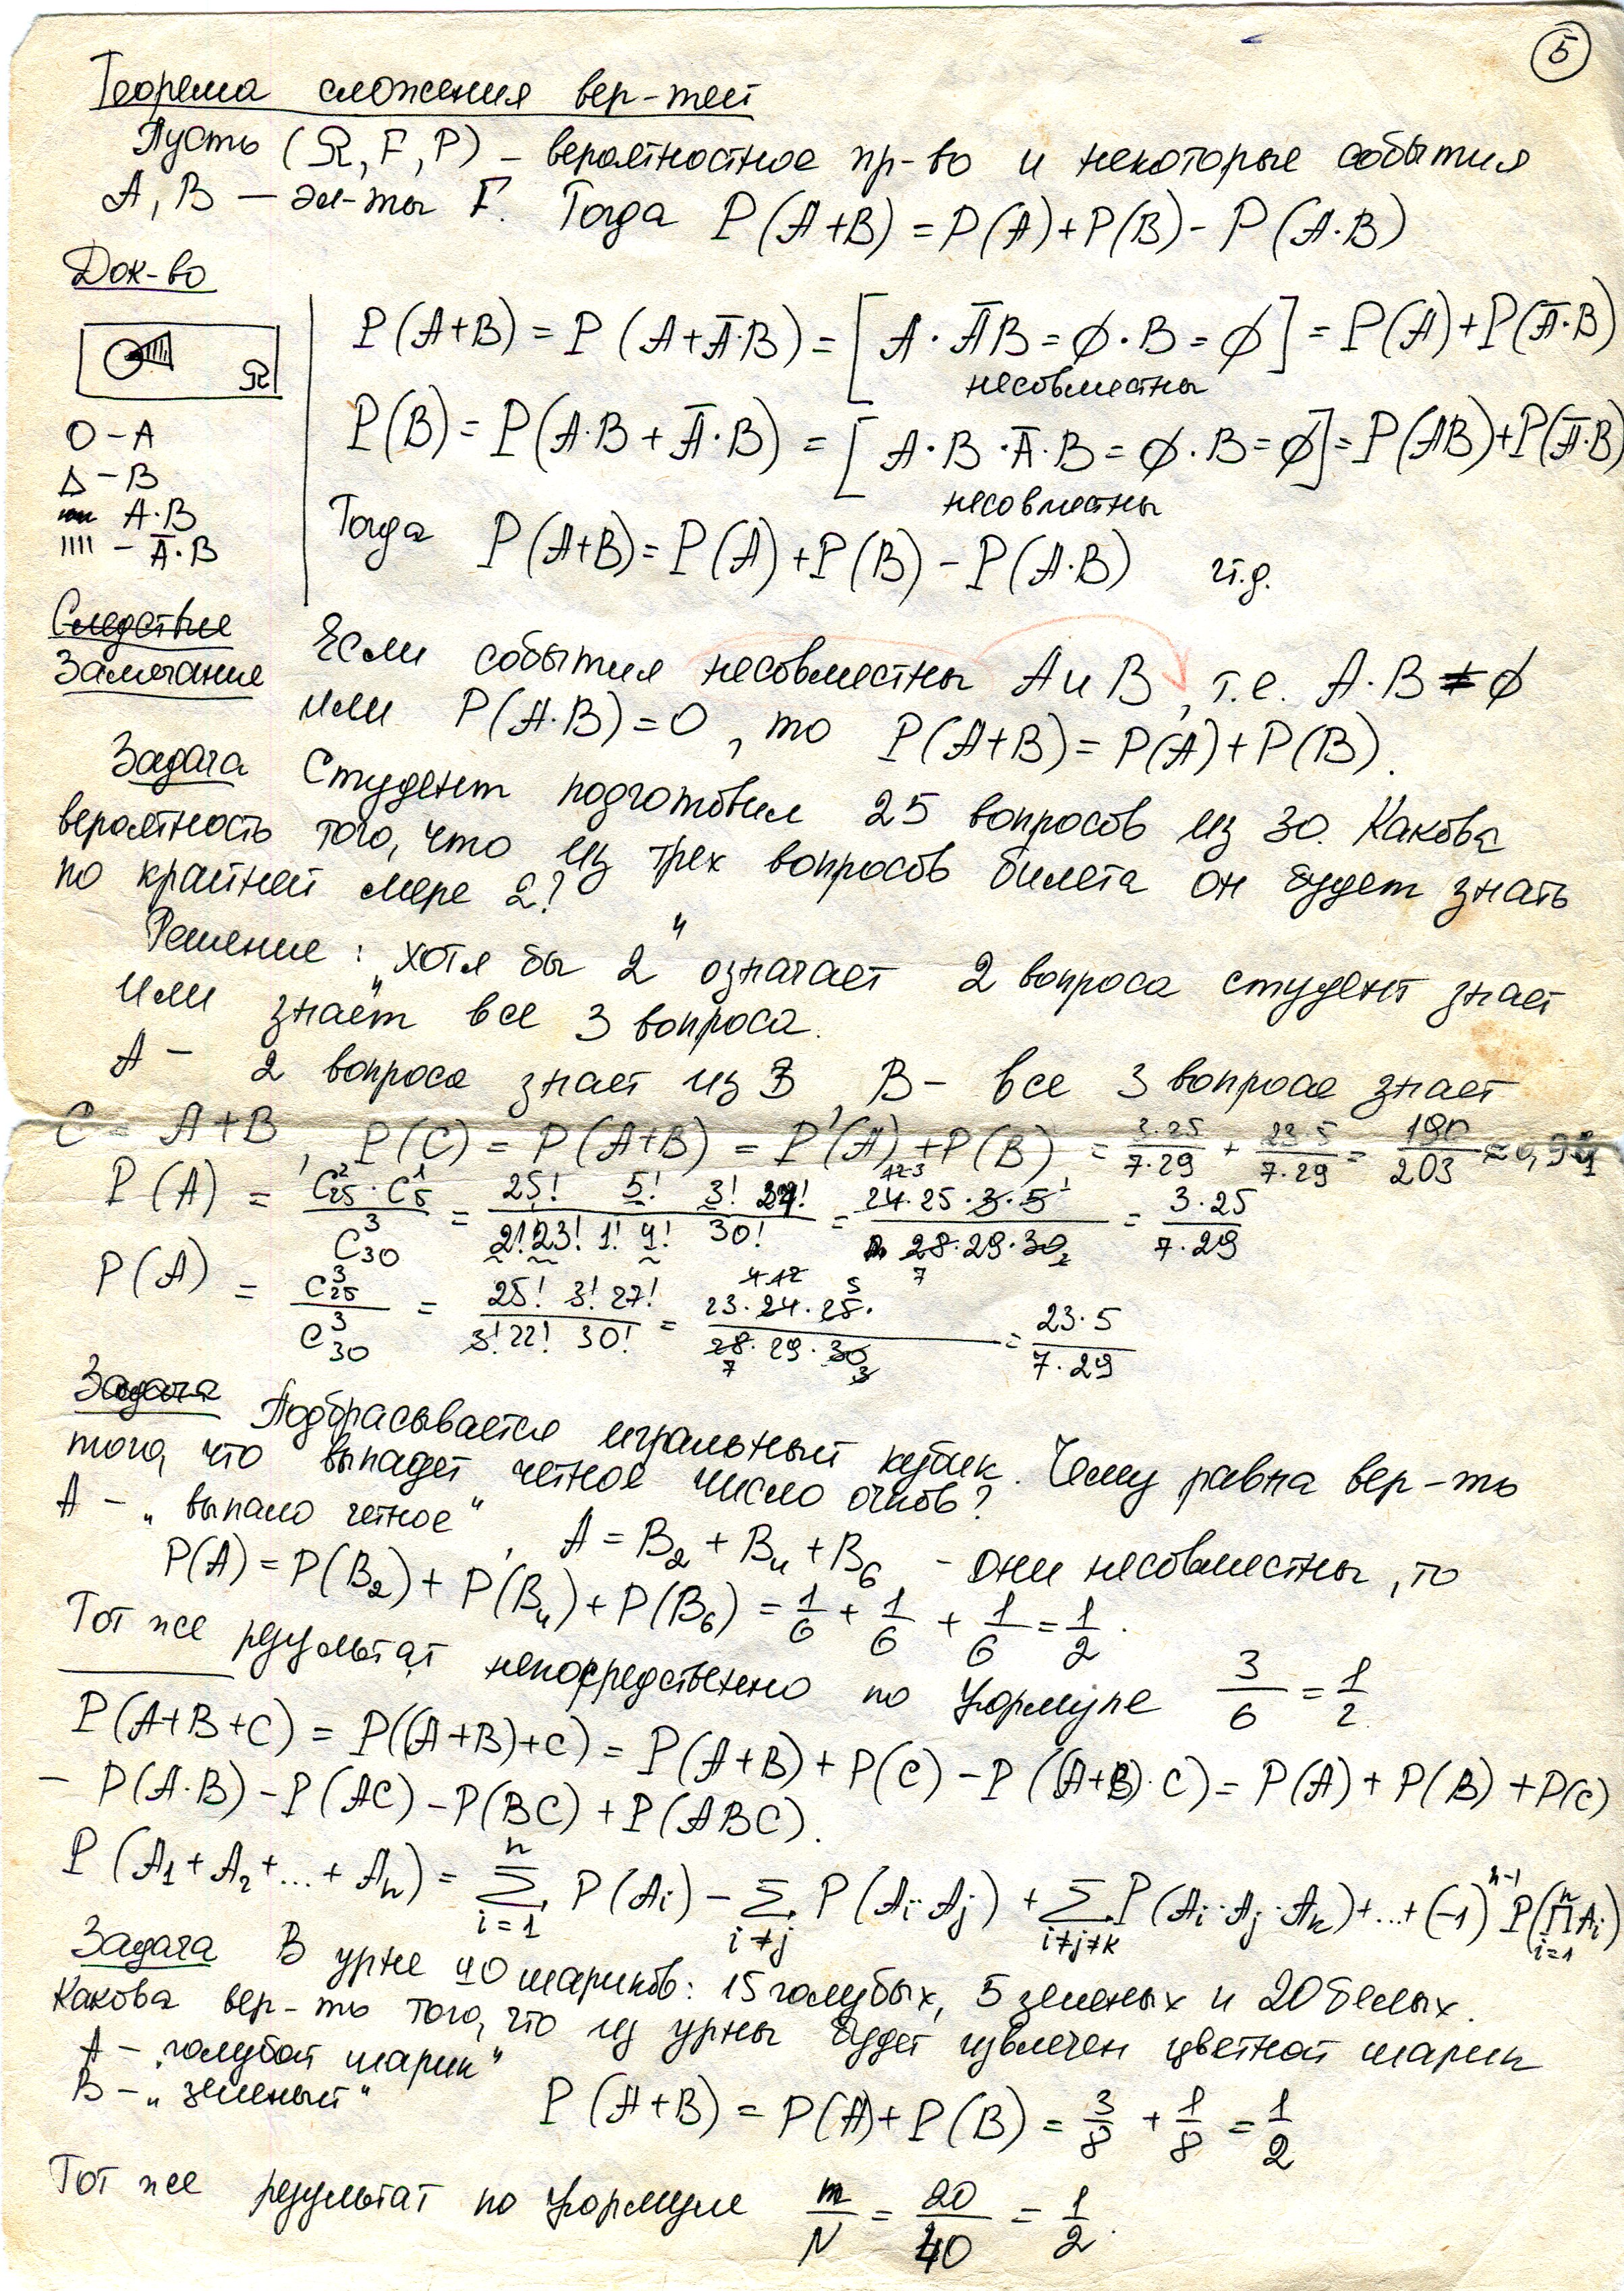 5
Теорема сложения вер-тей
Пусть (Ω, F, P) – вероятностное пр-во и некоторые события
A, B — эл-ты F. Тогда P(A+B) = P(A)+P(B) - P(A·B)
Док-во
P(A+B) = P(A+Ā·B) = [A·ĀB = ∅·B = ∅] = P(A)+P(Ā·B)
несовместны
Ω
P(B) = P(A·B + Ā·B) = [A·B·Ā·B = ∅·B = ∅] = P(AB)+P(Ā·B)
несовместны
O – A
Δ – B
A·B
|||| – Ā·B
Тогда P(A+B) = P(A)+P(B) – P(A·B) чт.д.
Следствие
Замечание Если события несовместны A и B, т.е. A·B = ∅
или P(A·B)=0, то P(A+B) = P(A)+P(B).
Задача Студент подготовил 25 вопросов из 30. Какова
вероятность того, что из трех вопросов билета он будет знать
по крайней мере 2?
Решение: „хотя бы 2" означает 2 вопроса студент знает
или знает все 3 вопроса.
A – 2 вопроса знает из 3, B – все 3 вопроса знает
C = A+B, P(C) = P(A+B) = P(A)+P(B) = 3·25/7·29 + 23·5/7·29 = 190/203 ≈ 0,94
P(A) = C²₂₅·C¹₅ / C³₃₀ = 25! 5! 3! 27! / 2! 23! 1! 4! 30! = 24·25·3·5 / 28·29·30 = 3·25 / 7·29
P(A) = C³₂₅ / C³₃₀ = 25! 3! 27! / 3! 22! 30! = 23·24·25· / 28·29·30 = 23·5 / 7·29
Задача Подбрасывается игральный кубик. Чему равна вер-ть
того, что выпадет четное число очков?
A – „выпало четное", A = B₂ + B₄ + B₆ – они несовместны, то
P(A) = P(B₂) + P(B₄) + P(B₆) = 1/6 + 1/6 + 1/6 = 1/2.
Тот же результат непосредственно по формуле 3/6 = 1/2.
P(A+B+C) = P((A+B)+C) = P(A+B) + P(C) – P((A+B)·C) = P(A) + P(B) + P(C)
– P(A·B) – P(AC) – P(BC) + P(ABC).
P(A₁+A₂+...+Aₙ) = Σⁿᵢ₌₁ P(Aᵢ) – Σ i≠j P(Aᵢ·Aⱼ) + Σ i≠j≠k P(Aᵢ·Aⱼ·Aₖ)+...+(-1)ⁿ⁻¹ P(∏ⁿᵢ₌₁ Aᵢ)
Задача В урне 40 шариков: 15 голубых, 5 зеленых и 20 белых.
Какова вер-ть того, что из урны будет извлечен цветной шарик
A – „голубой шарик"
B – „зеленый"
P(A+B) = P(A)+P(B) = 3/8 + 1/8 = 1/2
Тот же результат по формуле m/N = 20/40 = 1/2.